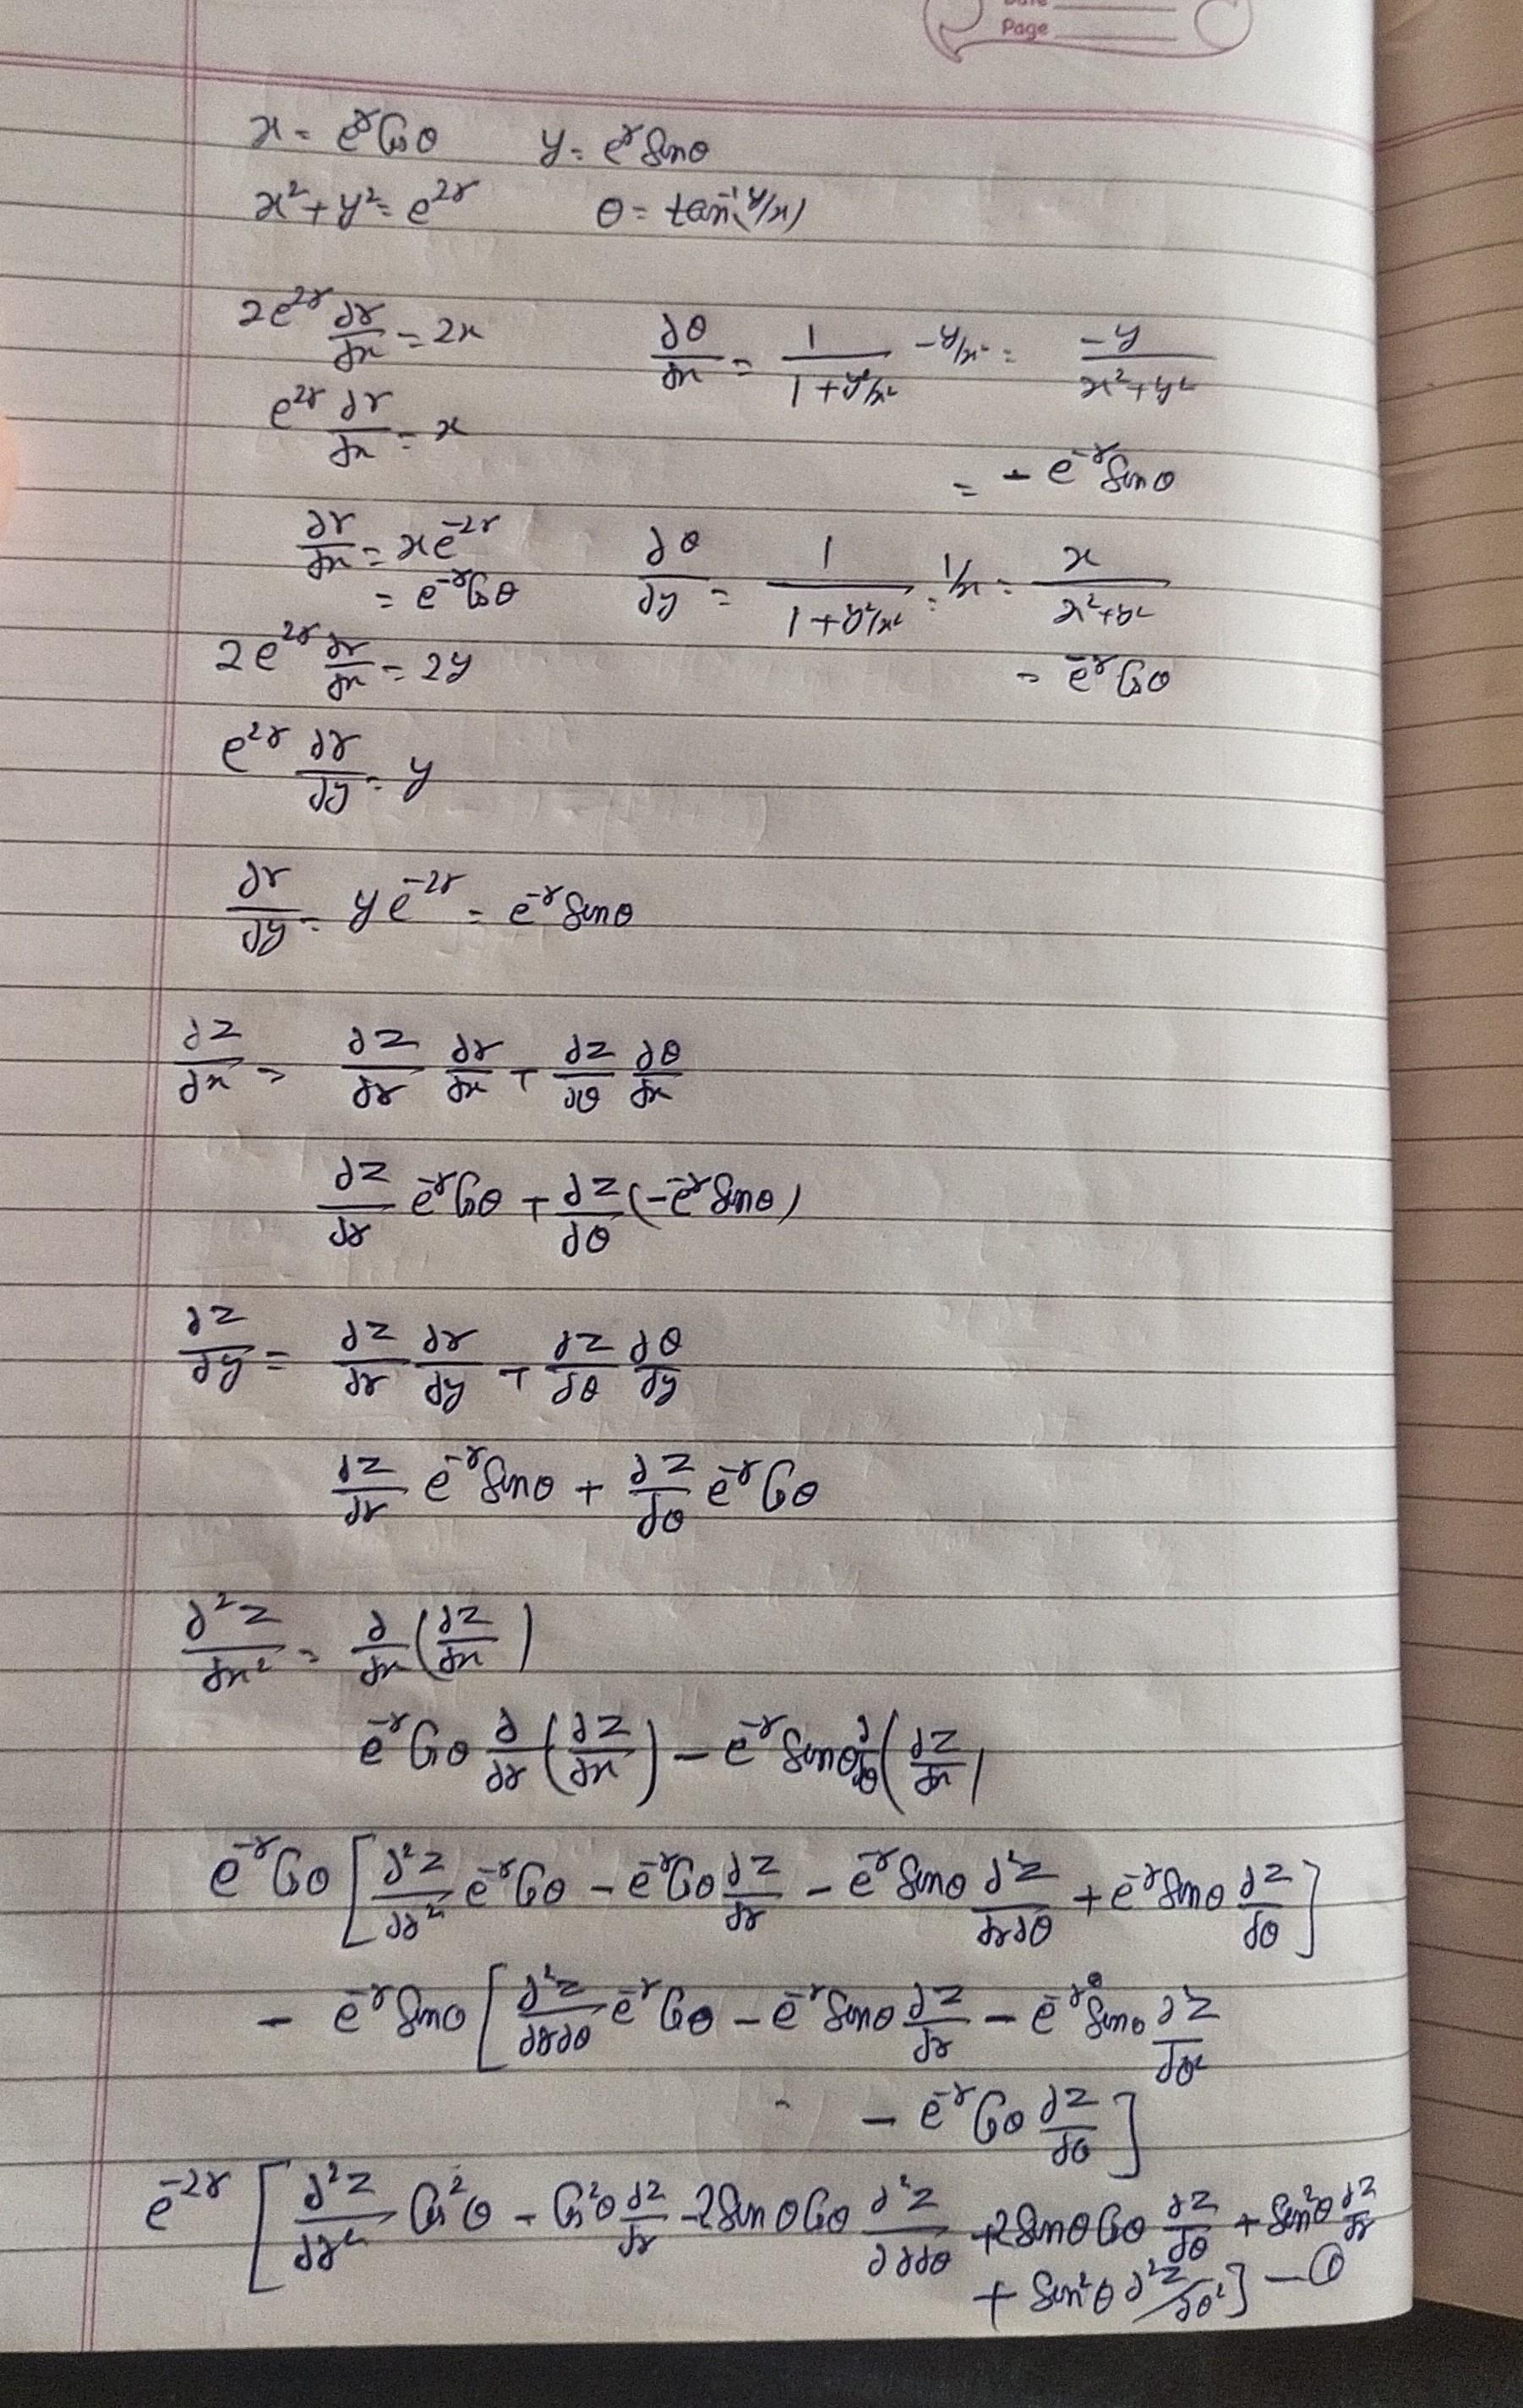 Page
x = e^r Cosθ    y = e^r Sinθ
x² + y² = e^2r    θ = tan⁻¹(y/x)
2e^2r ∂r/∂x = 2x    ∂θ/∂x = 1/(1+y²/x²) -y/x² = -y/(x²+y²)
e^2r ∂r/∂x = x
= - e^-r Sinθ
∂r/∂x = xe^-2r    ∂θ/∂y = 1/(1+y²/x²) · 1/x = x/(x²+y²)
= e^-r Cosθ
2e^2r ∂r/∂x = 2y    = e^-r Cosθ
e^2r ∂r/∂y = y
∂r/∂y = ye^-2r = e^-r Sinθ
∂z/∂x = ∂z/∂r ∂r/∂x + ∂z/∂θ ∂θ/∂x
∂z/∂r e^-r Cosθ + ∂z/∂θ (-e^-r Sinθ)
∂z/∂y = ∂z/∂r ∂r/∂y + ∂z/∂θ ∂θ/∂y
∂z/∂r e^-r Sinθ + ∂z/∂θ e^-r Cosθ
∂²z/∂x² = ∂/∂x (∂z/∂x)
e^-r Cosθ ∂/∂r (∂z/∂x) - e^-r Sinθ ∂/∂θ (∂z/∂x)
e^-r Cosθ [∂²z/∂r² e^-r Cosθ - e^-r Cosθ ∂z/∂r - e^-r Sinθ ∂²z/∂r∂θ + e^-r Sinθ ∂z/∂θ]
- e^-r Sinθ [∂²z/∂r∂θ e^-r Cosθ - e^-r Sinθ ∂z/∂r - e^-r Sinθ ∂²z/∂θ²
- e^-r Cosθ ∂z/∂θ]
e^-2r [∂²z/∂r² Cos²θ - Cos²θ ∂z/∂r - 2SinθCosθ ∂²z/∂r∂θ + 2SinθCosθ ∂z/∂θ + Sin²θ ∂z/∂r
+ Sin²θ ∂²z/∂θ²] - ①